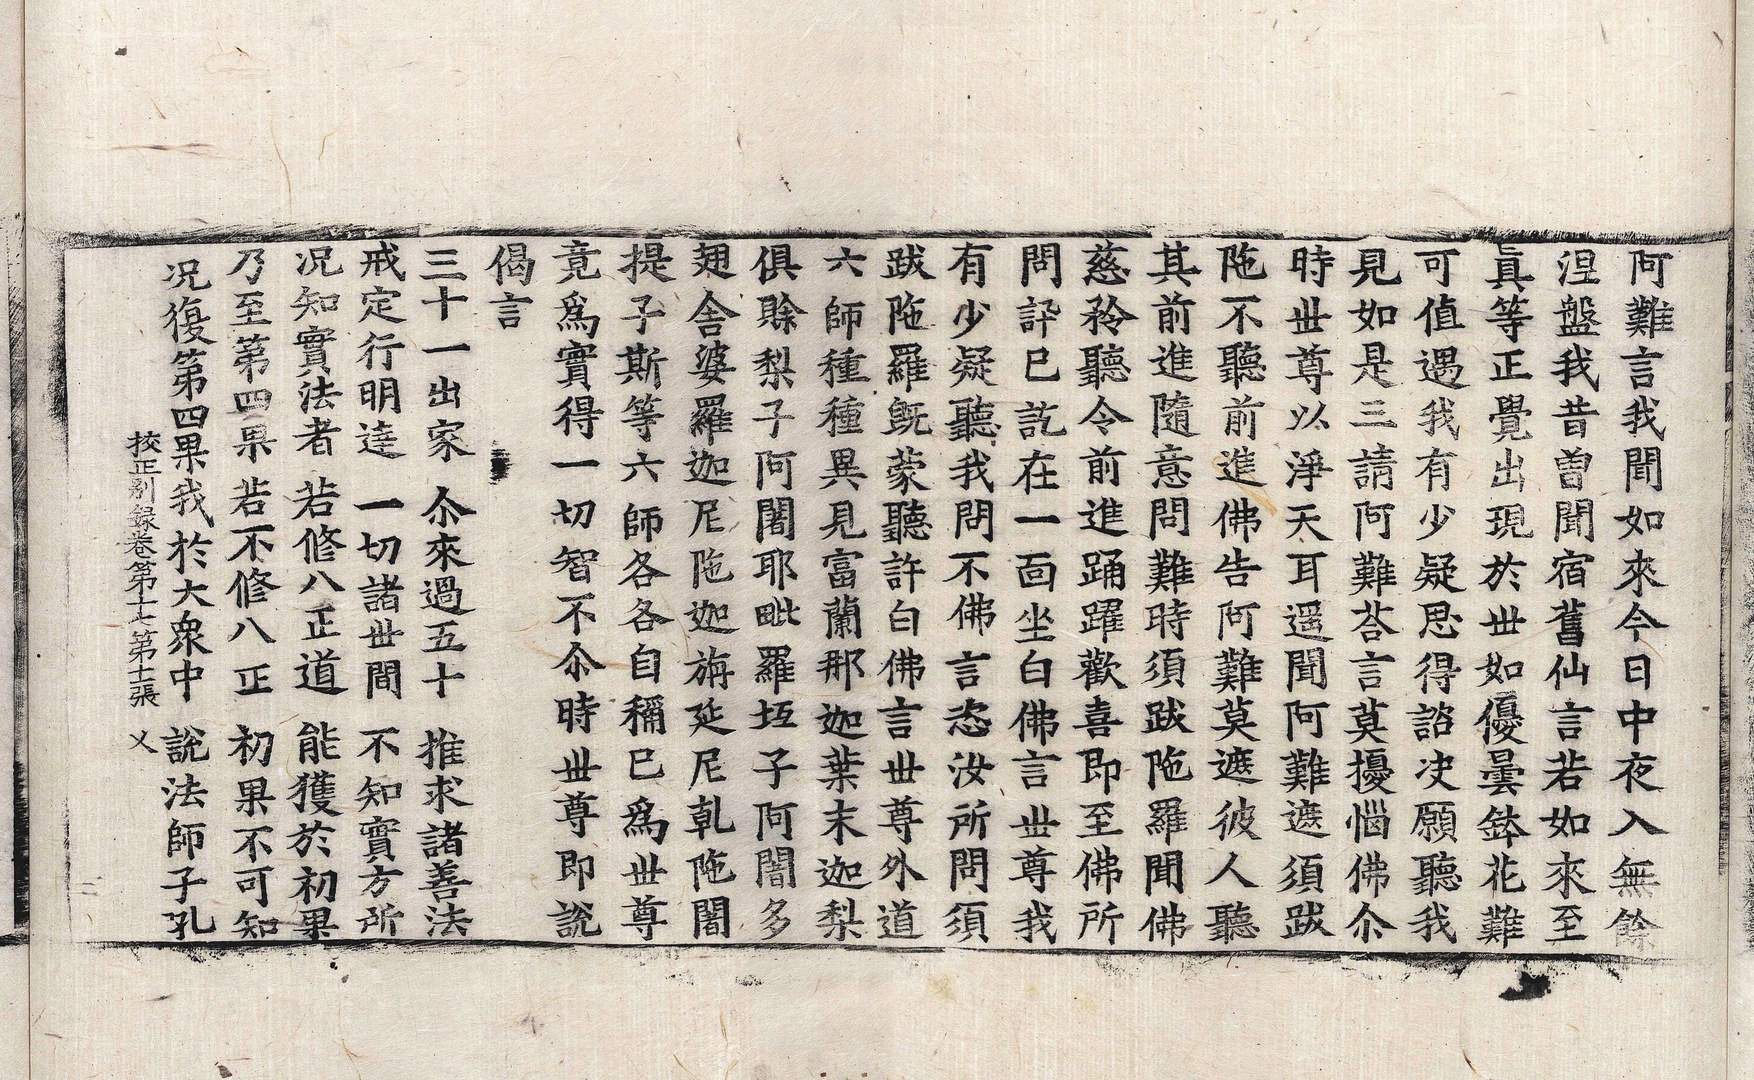 阿難言我聞如來今日中夜入無餘
涅盤我昔曽聞宿舊仙言若如來至
眞等正覺出現於世如優曇鉢花難
可值遇我有少疑思得諮決願聽我
見如是三請阿難荅言莫擾惱佛尒
時世尊以淨天耳遥聞阿難遮須跋
陁不聽前進佛告阿難莫遮彼人聽
其前進隨意問難時須跋陁羅聞佛
慈矜聽令前進踊躍歡喜即至佛所
問訊已訖在一面坐白佛言世尊我
有少疑聽我問不佛言恣汝所問須
跋陁羅旣蒙聽許白佛言世尊外道
六師種種異見富蘭那迦葉末迦梨
俱賒梨子阿闍耶毗羅坻子阿闍多
翅舍婆羅迦尼陁迦旃延尼乹陁闍
提子斯等六師各各自稱已爲世尊
竟爲實得一切智不尒時世尊即說
偈言
三十一出家　尒來過五十　推求諸善法
戒定行明逹　一切諸世閒　不知實方所
况知實法者　若修八正道　能獲於初果
乃至第四果　若不修八正　初果不可知
况復第四果　我於大衆中　說法師子吼
挍正别録卷第十七第十二張　乂